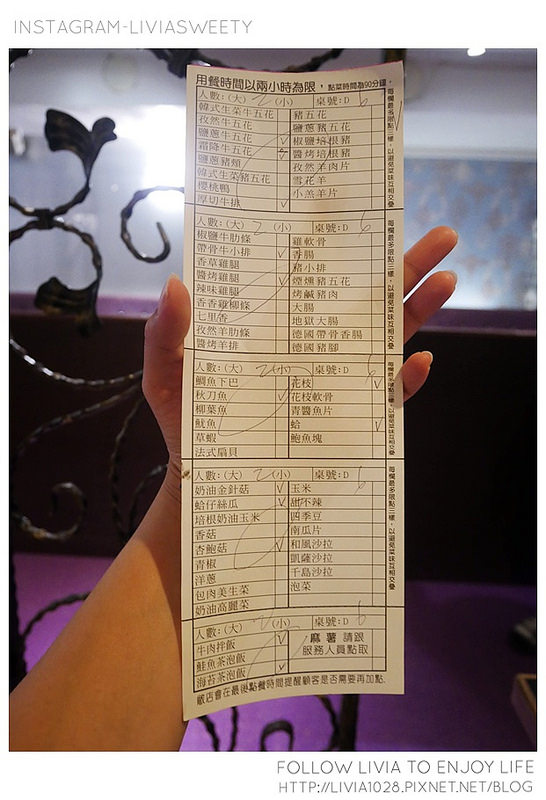 INSTAGRAM-LIVIASWEETY
用餐時間以兩小時為限，點菜時間為90分鐘。
人數:(大) 2 (小) 桌號:D 6
韓式生菜牛五花 豬五花
孜然牛五花 鹽蔥豬五花
鹽蔥牛五花 椒鹽培根豬
霜降牛五花 醬烤培根豬
鹽蔥豬頰 孜然羊肉片
韓式生菜豬五花 雪花羊
櫻桃鴨 小羔羊片
厚切牛排
每欄最多限點三樣，以避免菜味互相交疊
人數:(大) 2 (小) 桌號:D 6
椒鹽牛肋條 雞軟骨
帶骨牛小排 香腸
香草雞腿 豬小排
醬烤雞腿 煙燻豬五花
辣味雞腿 烤鹹豬肉
香香雞柳條 大腸
七里香 地獄大腸
孜然羊肋條 德國帶骨香腸
醬烤羊排 德國豬腳
每欄最多限點三樣，以避免菜味互相交疊
人數:(大) 2 (小) 桌號:D 6
鯛魚下巴 花枝
秋刀魚 花枝軟骨
柳葉魚 青醬魚片
魷魚 蛤
草蝦 鮑魚塊
法式扇貝
每欄最多限點三樣，以避免菜味互相交疊
人數:(大) 2 (小) 桌號:D 6
奶油金針菇 玉米
蛤仔絲瓜 甜不辣
培根奶油玉米 四季豆
香菇 南瓜片
杏鮑菇 和風沙拉
青椒 凱薩沙拉
洋蔥 千島沙拉
包肉美生菜 泡菜
奶油高麗菜
每欄最多限點三樣，以避免菜味互相交疊
人數:(大) 2 (小) 桌號:D 6
牛肉拌飯 麻薯 請跟
鮭魚茶泡飯 服務人員點取
海苔茶泡飯
敝店會在最後點餐時間提醒顧客是否需要再加點.
FOLLOW LIVIA TO ENJOY LIFE
HTTP://LIVIA1028.PIXNET.NET/BLOG